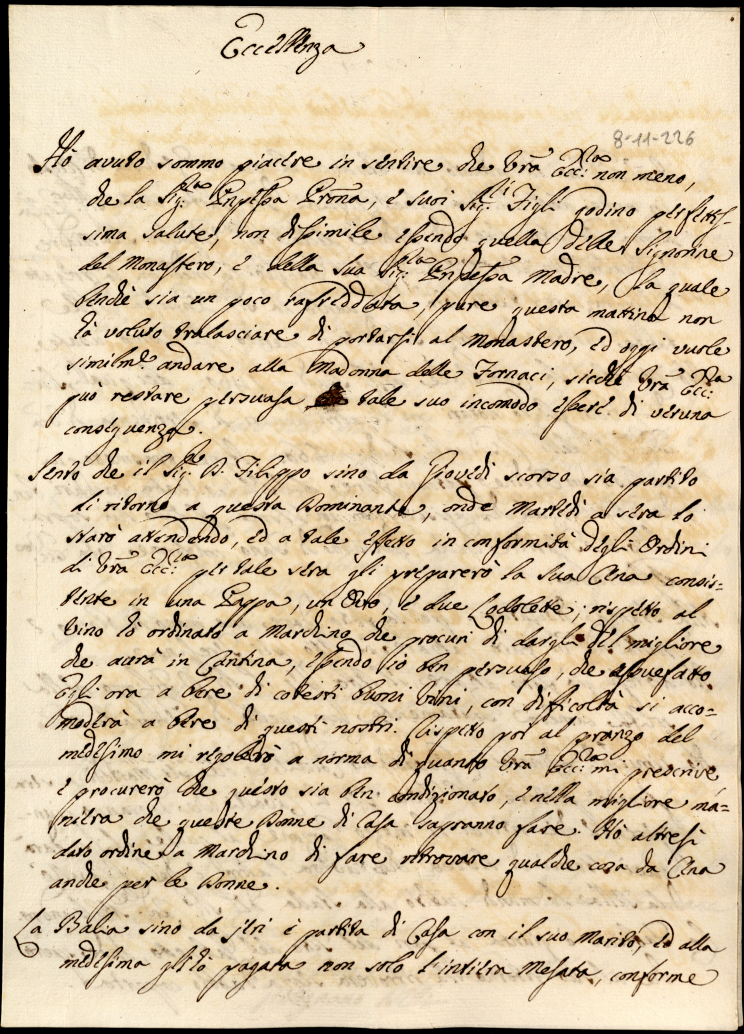 Eccellenza
8-11-226
Hò avuto sommo piacere in sentire che Vrã Ecc:za non meno,
che la Sig:ra Pnpessa Prona, e suoi Sig:ri Figli godino perfettis-
sima salute, non dissimile essendo quella delle Signorine
del Monastero, e della sua Sig:ra Pnpessa Madre, la quale
benche sia un poco rafreddata, pure questa mattina non
hà voluto tralasciare di portarsi al Monastero, ed oggi vuole
similmte andare alla Madonna delle Fornaci, sicche Vrã Ecc:za
può restare persuasa tale suo incomodo essere di veruna
conseguenza.
Sento che il Sig:re D. Filippo sino da Giovedi scorso sia partito
di ritorno a questa Dominante, onde Martedi a sera lo
starò attendendo, ed a tale effetto in conformità degli Ordini
di Vrã Ecc:za per tale sera gli preparerò la sua Cena consis-
tente in una Pappa, un Ovo, e due Lodolette; rispetto al
vino hò ordinato a Marchino che procuri di dargli del migliore
che averà in Cantina, essendo io ben persuaso, che assuefatto
Egli ora a bere di cotesti buoni Vini, con difficoltà si acco=
moderà a bere di questi nostri. Rispetto poi al pranzo del
medesimo mi regolerò a norma di quanto Vrã Ecc:za mi prescrive
e procurerò che questo sia ben condizionato, e nella migliore ma=
niera che queste Donne di Casa sapranno fare. Hò altresi
dato ordine a Marchino di fare ritrovare qualche cosa da Cena
anche per le Donne.
La Balia sino da jeri è partita di Casa con il suo Marito, ed alla
medesima gli hò pagata non solo l'intiera Mesata, conforme